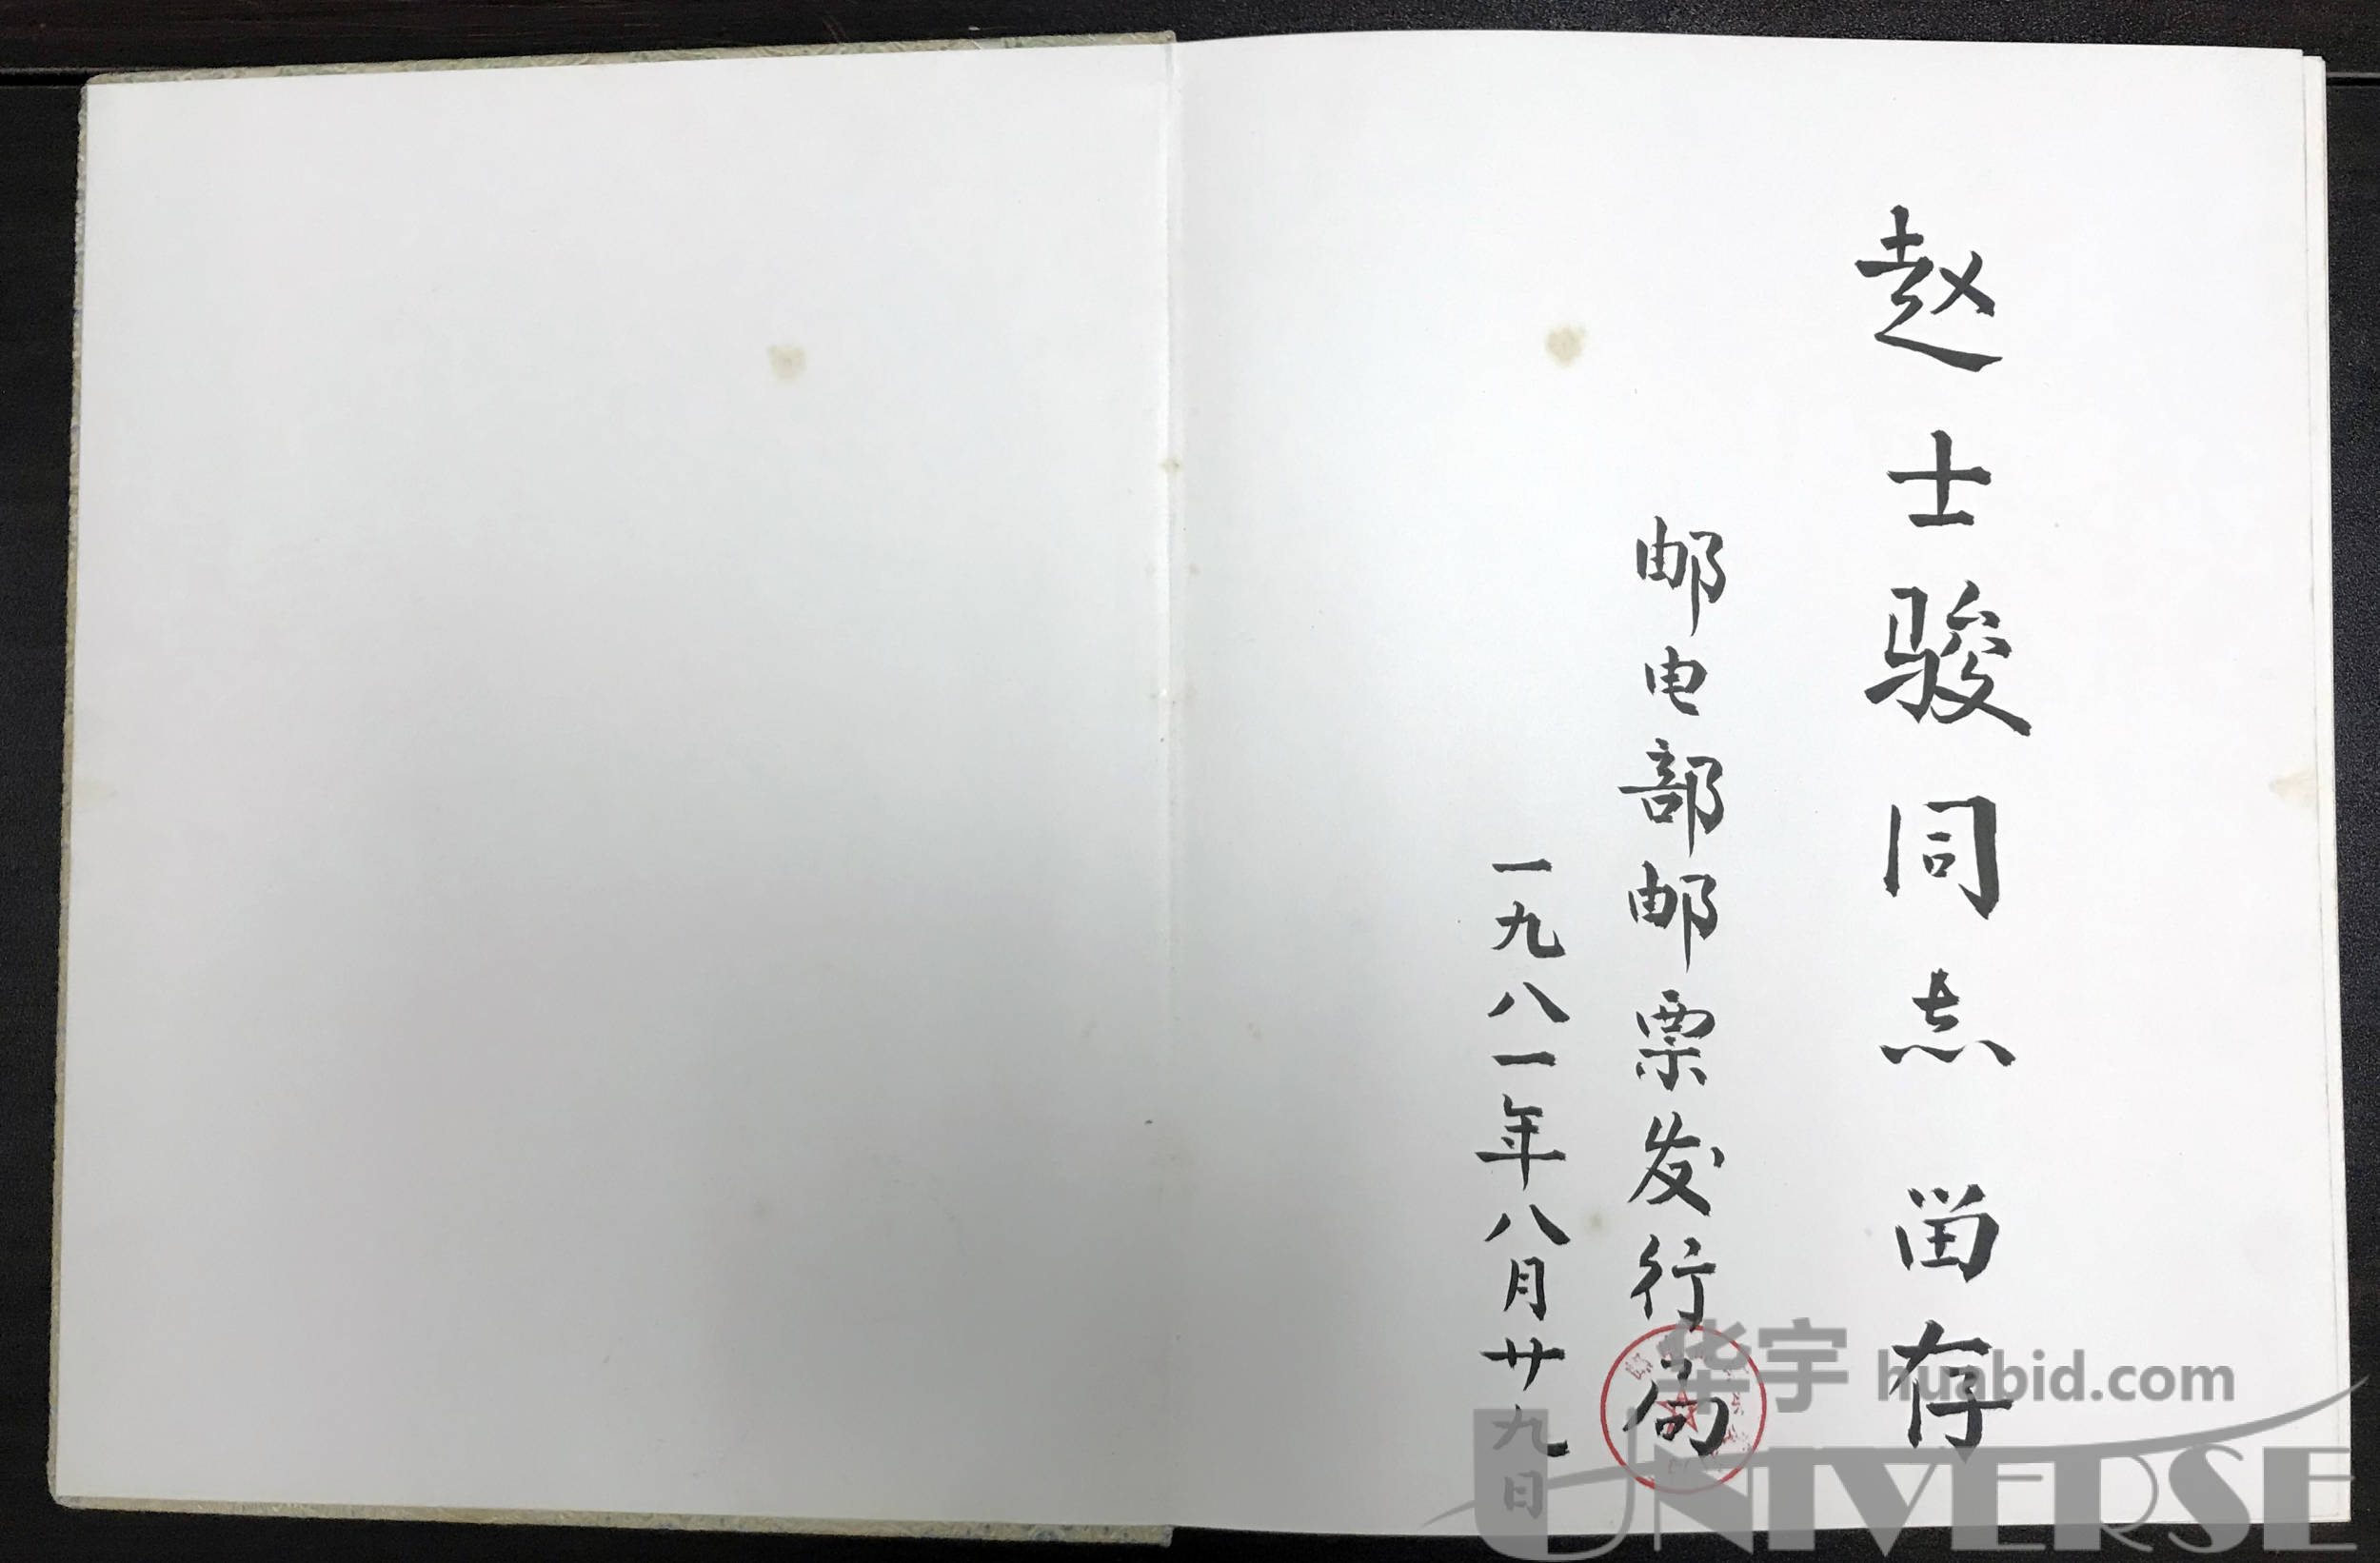 赵士骏同志 留存
邮电部邮票发行局
一九八一年八月廿九日
华宇 huabid.com
UNIVERSE